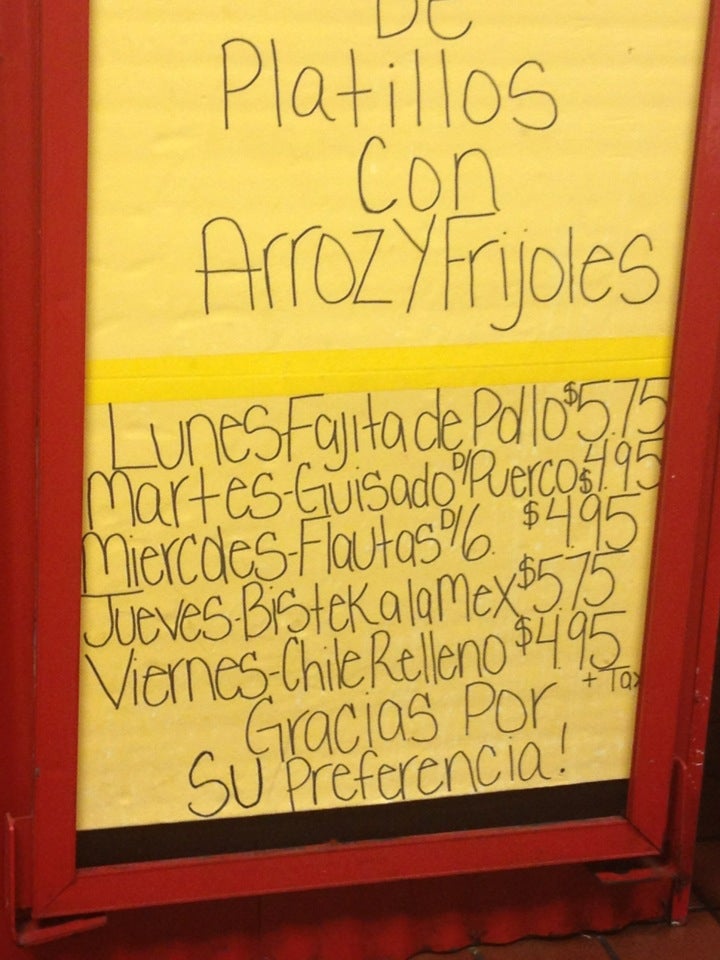 De
Platillos
Con
Arroz Y Frijoles
Lunes-Fajita de Pollo $5.75
Martes-Guisado D/Puerco $4.95
Miercoles-Flautas D/6. $4.95
Jueves-Bistek a la Mex $5.75
Viernes-Chile Relleno $4.95
+ Tax
Gracias Por
Su Preferencia!